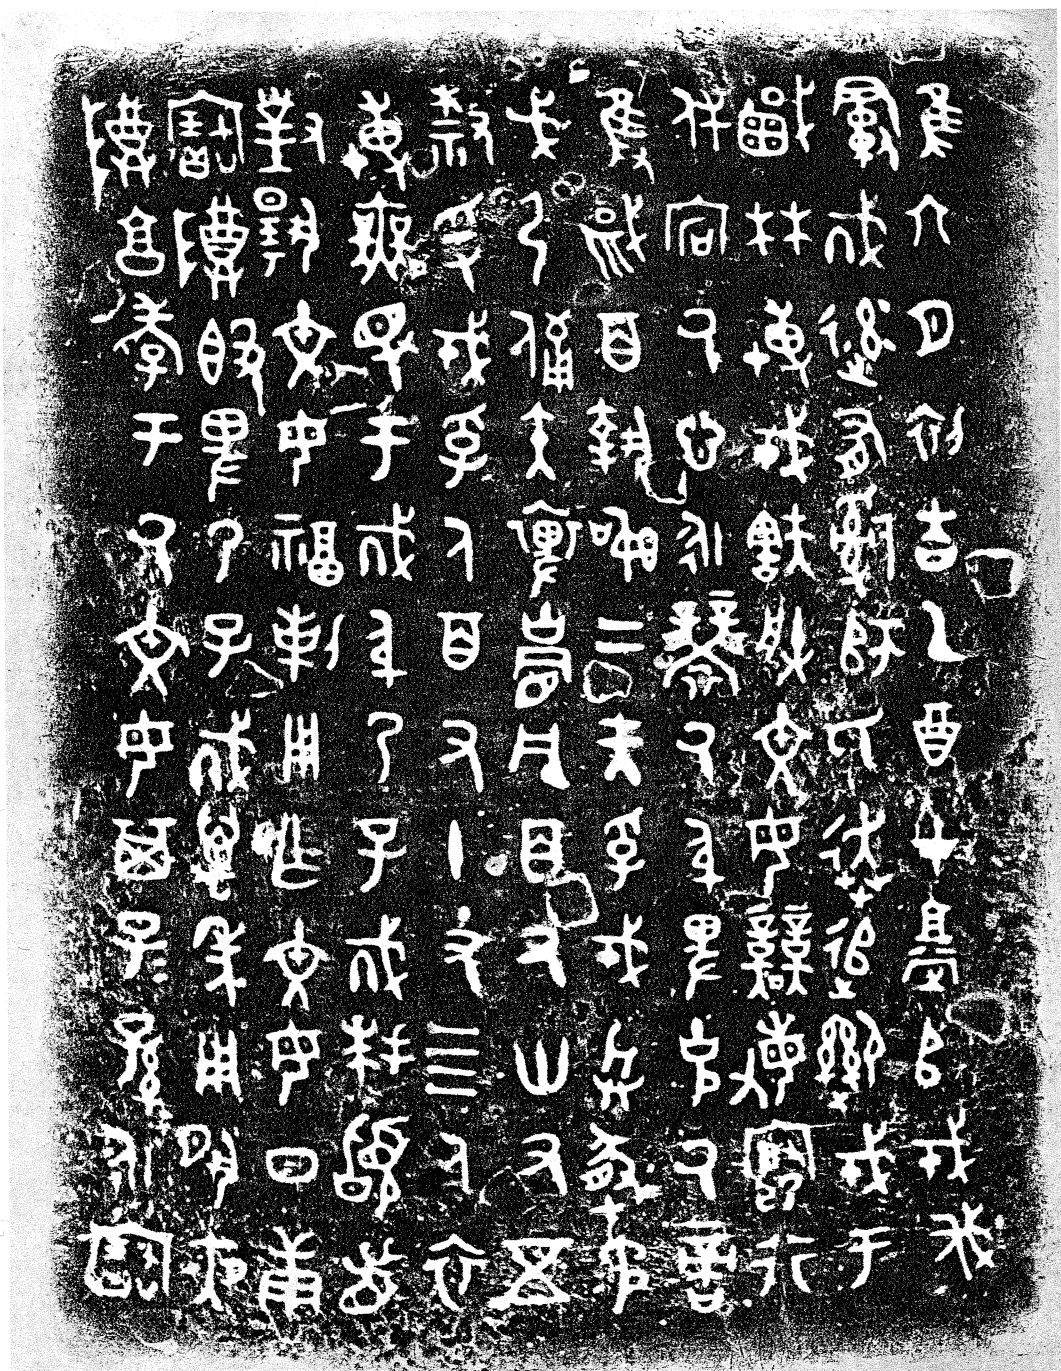 隹六月初吉乙酉才𩫨𠂤戎伐
𢦚率有𤔲師氏奔追禦戎于
棫林博戎㝬朕文母競敏行
休宕氒心永襲氒身卑克氒啻
隻馘百執訊二夫孚戎兵盾矛
戈弓備矢裨冑凡百又卅又五
𣪘捋戎孚人百又十又四人衣
博無斁于𢦚身乃子𢦚拜𩒨首
對揚文母福剌用乍文母日庚
寶尊𣪘卑乃子𢦚萬年用夙夜
尊享孝于氒文母其子子孫孫永寶